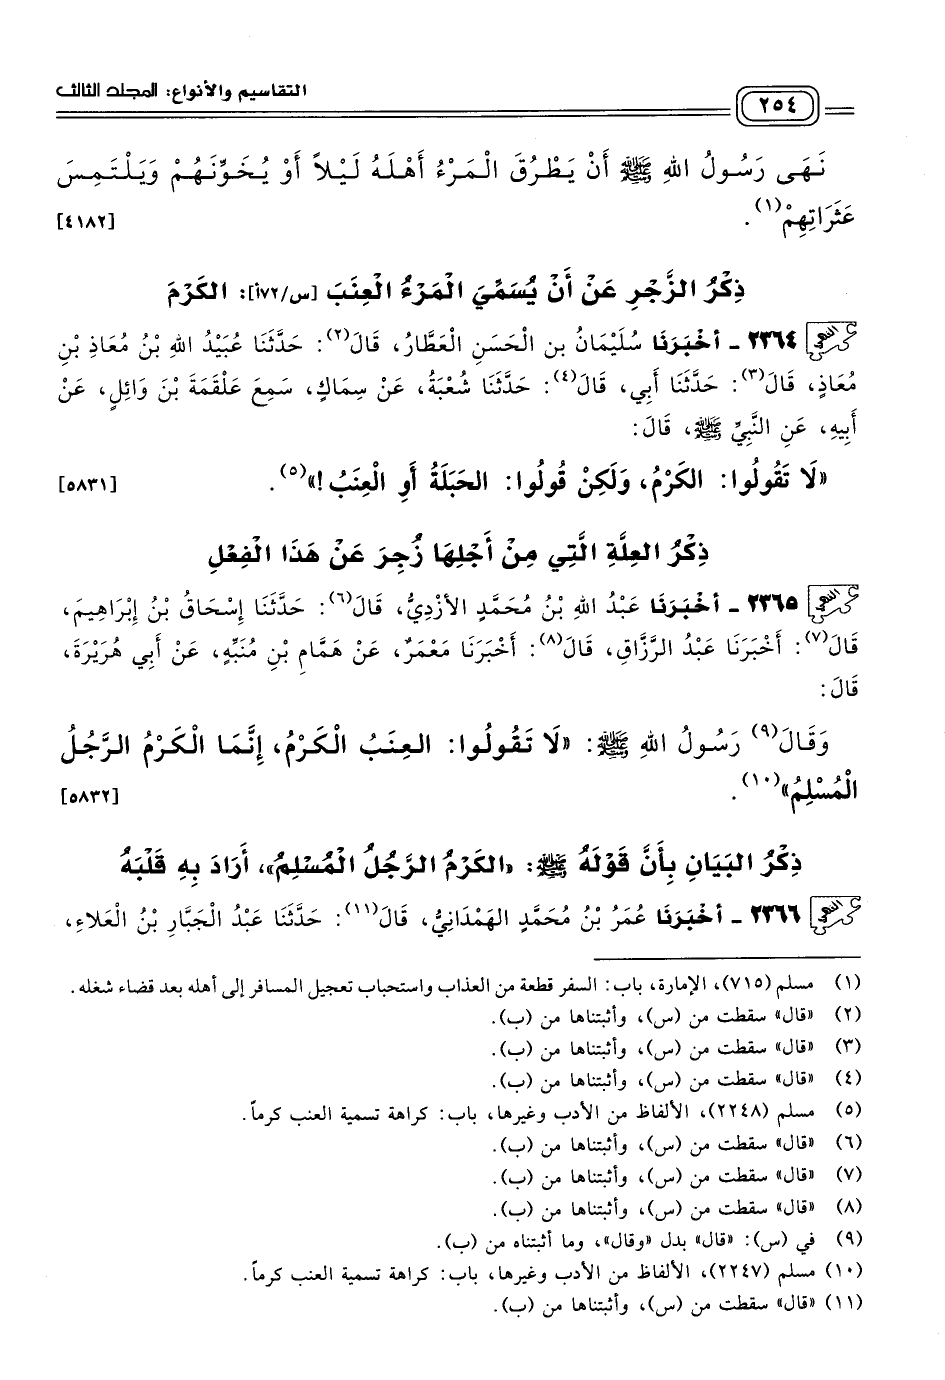 ٢٥٤ التقاسيم والأنواع: المجلد الثالث
نَهَى رَسُولُ اللهِ ﷺ أَنْ يَطْرُقَ الْمَرْءُ أَهْلَهُ لَيْلاً أَوْ يُخَوِّنَهُمْ وَيَلْتَمِسَ
عَثَرَاتِهِمْ(١). [٤١٨٢]
ذِكْرُ الزَّجْرِ عَنْ أَنْ يُسَمِّيَ الْمَرْءُ الْعِنَبَ [س/٧٢أ]: الكَرْمَ
٢٣٦٤ ـ أخْبَرَنَا سُلَيْمَانُ بن الْحَسَنِ الْعَطَّارُ، قَالَ(٢): حَدَّثَنَا عُبَيْدُ اللهِ بْنُ مُعَاذِ بْنِ
مُعَاذٍ، قَالَ(٣): حَدَّثَنَا أَبِي، قَالَ(٤): حَدَّثَنَا شُعْبَةُ، عَنْ سِمَاكٍ، سَمِعَ عَلْقَمَةَ بْنَ وَائِلٍ، عَنْ
أَبِيهِ، عَنِ النَّبِيِّ ﷺ، قَالَ:
«لَا تَقُولُوا: الكَرْمُ، وَلَكِنْ قُولُوا: الحَبَلَةُ أَوِ الْعِنَبُ!»(٥). [٥٨٣١]
ذِكْرُ العِلَّةِ الَّتِي مِنْ أَجْلِهَا زُجِرَ عَنْ هَذَا الْفِعْلِ
٢٣٦٥ ـ أخْبَرَنَا عَبْدُ اللهِ بْنُ مُحَمَّدٍ الأَزْدِيُّ، قَالَ(٦): حَدَّثَنَا إِسْحَاقُ بْنُ إِبْرَاهِيمَ،
قَالَ(٧): أَخْبَرَنَا عَبْدُ الرَّزَّاقِ، قَالَ(٨): أَخْبَرَنَا مَعْمَرٌ، عَنْ هَمَّامِ بْنِ مُنَبِّهٍ، عَنْ أَبِي هُرَيْرَةَ،
قَالَ:
وَقَالَ(٩) رَسُولُ اللهِ ﷺ: «لَا تَقُولُوا: العِنَبُ الْكَرْمُ، إِنَّمَا الْكَرْمُ الرَّجُلُ
الْمُسْلِمُ»(١٠). [٥٨٣٢]
ذِكْرُ البَيَانِ بِأَنَّ قَوْلَهُ ﷺ: «الكَرْمُ الرَّجُلُ الْمُسْلِمُ»، أَرَادَ بِهِ قَلْبَهُ
٢٣٦٦ ـ أخْبَرَنَا عُمَرُ بْنُ مُحَمَّدٍ الهَمْدَانِيُّ، قَالَ(١١): حَدَّثَنَا عَبْدُ الْجَبَّارِ بْنُ الْعَلاءِ،
(١) مسلم (٧١٥)، الإمارة، باب: السفر قطعة من العذاب واستحباب تعجيل المسافر إلى أهله بعد قضاء شغله.
(٢) «قال» سقطت من (س)، وأثبتناها من (ب).
(٣) «قال» سقطت من (س)، وأثبتناها من (ب).
(٤) «قال» سقطت من (س)، وأثبتناها من (ب).
(٥) مسلم (٢٢٤٨)، الألفاظ من الأدب وغيرها، باب: كراهة تسمية العنب كرماً.
(٦) «قال» سقطت من (س)، وأثبتناها من (ب).
(٧) «قال» سقطت من (س)، وأثبتناها من (ب).
(٨) «قال» سقطت من (س)، وأثبتناها من (ب).
(٩) في (س): «قال» بدل «وقال»، وما أثبتناه من (ب).
(١٠) مسلم (٢٢٤٧)، الألفاظ من الأدب وغيرها، باب: كراهة تسمية العنب كرماً.
(١١) «قال» سقطت من (س)، وأثبتناها من (ب).